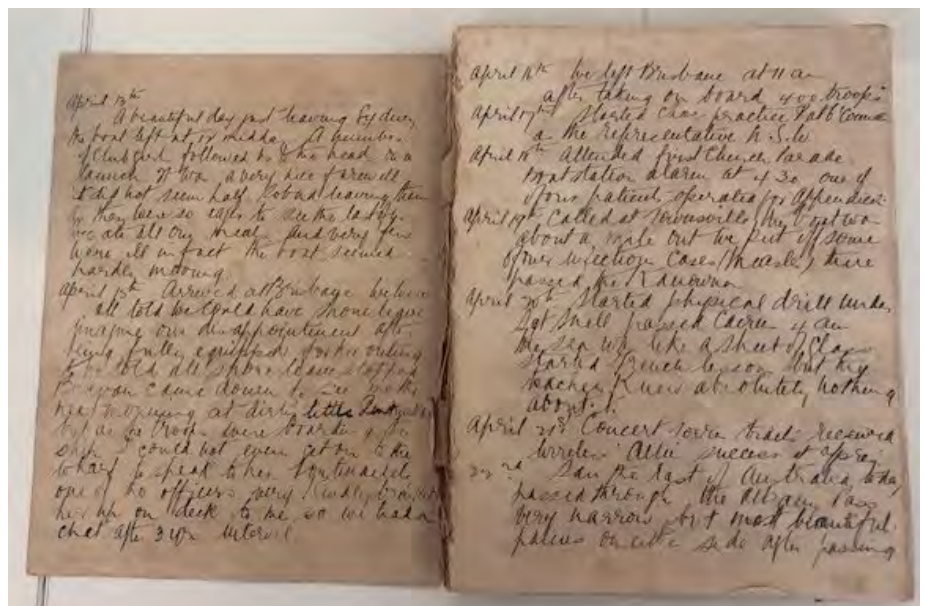 April 13th
A beautiful day just leaving Sydney
the boat left at 12 midday A number
of Club girls followed us to the head in a
launch It was a very nice farewell
it did not seem half so bad leaving them
they were so eager to see the last of
we ate all our meals and very few
were ill in fact the boat seemed
hardly moving
April 15th Arrived at Brisbane before
all told we could have shore leave
imagine our disappointment after
being fully equipped for the outing
to be told all shore leave stopped
came down to see
next morning at dirty little
but as the troops were boarding the
ship I could not even get on to the
wharf to speak to her
one of the officers very kindly
her up on deck to me, so we had a
chat after 3 yrs interval
April 16th We left Brisbane at 11 am
after taking on board 400 troops
April 17th Started Choir practice
as the representative N.S.W
April 18th Attended first Church Parade
Boat station alarm at 4.30 one of
our patients operated for Appendicitis
April 19th Called at Townsville, the boat was
about a mile out we put off some
of our infectious cases (measles) there
passed the Kanowna
April 20th Started physical drill under
Sgt Snell passed Cairns 4 am
the sea was like a sheet of Glass
started French lesson but my
teacher knew absolutely nothing
about it.
April 21st Concert received
wireless Allie success
22nd Saw the last of Australia today
passed through the Albany Pass
very narrow, but most beautiful
on either side after passing